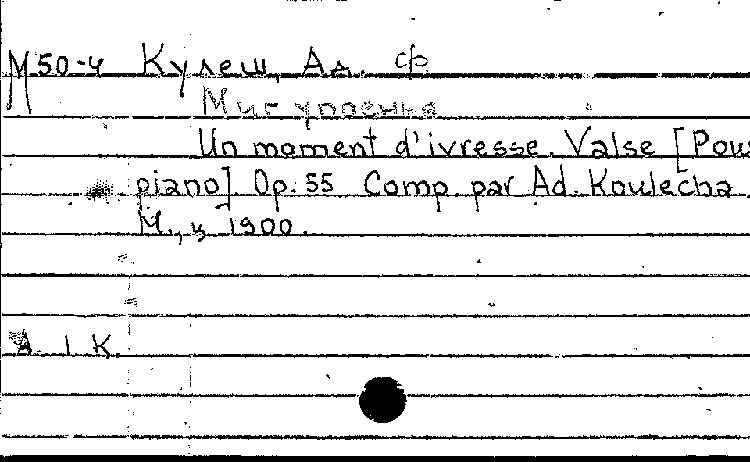 М50-4 Кулеш, Ад. Ф
Миг упоенья
Un moment d'ivresse. Valse [Pour
piano]. Op. 55 Comp. par Ad. Koulecha
М., ц 1900.
1 К.